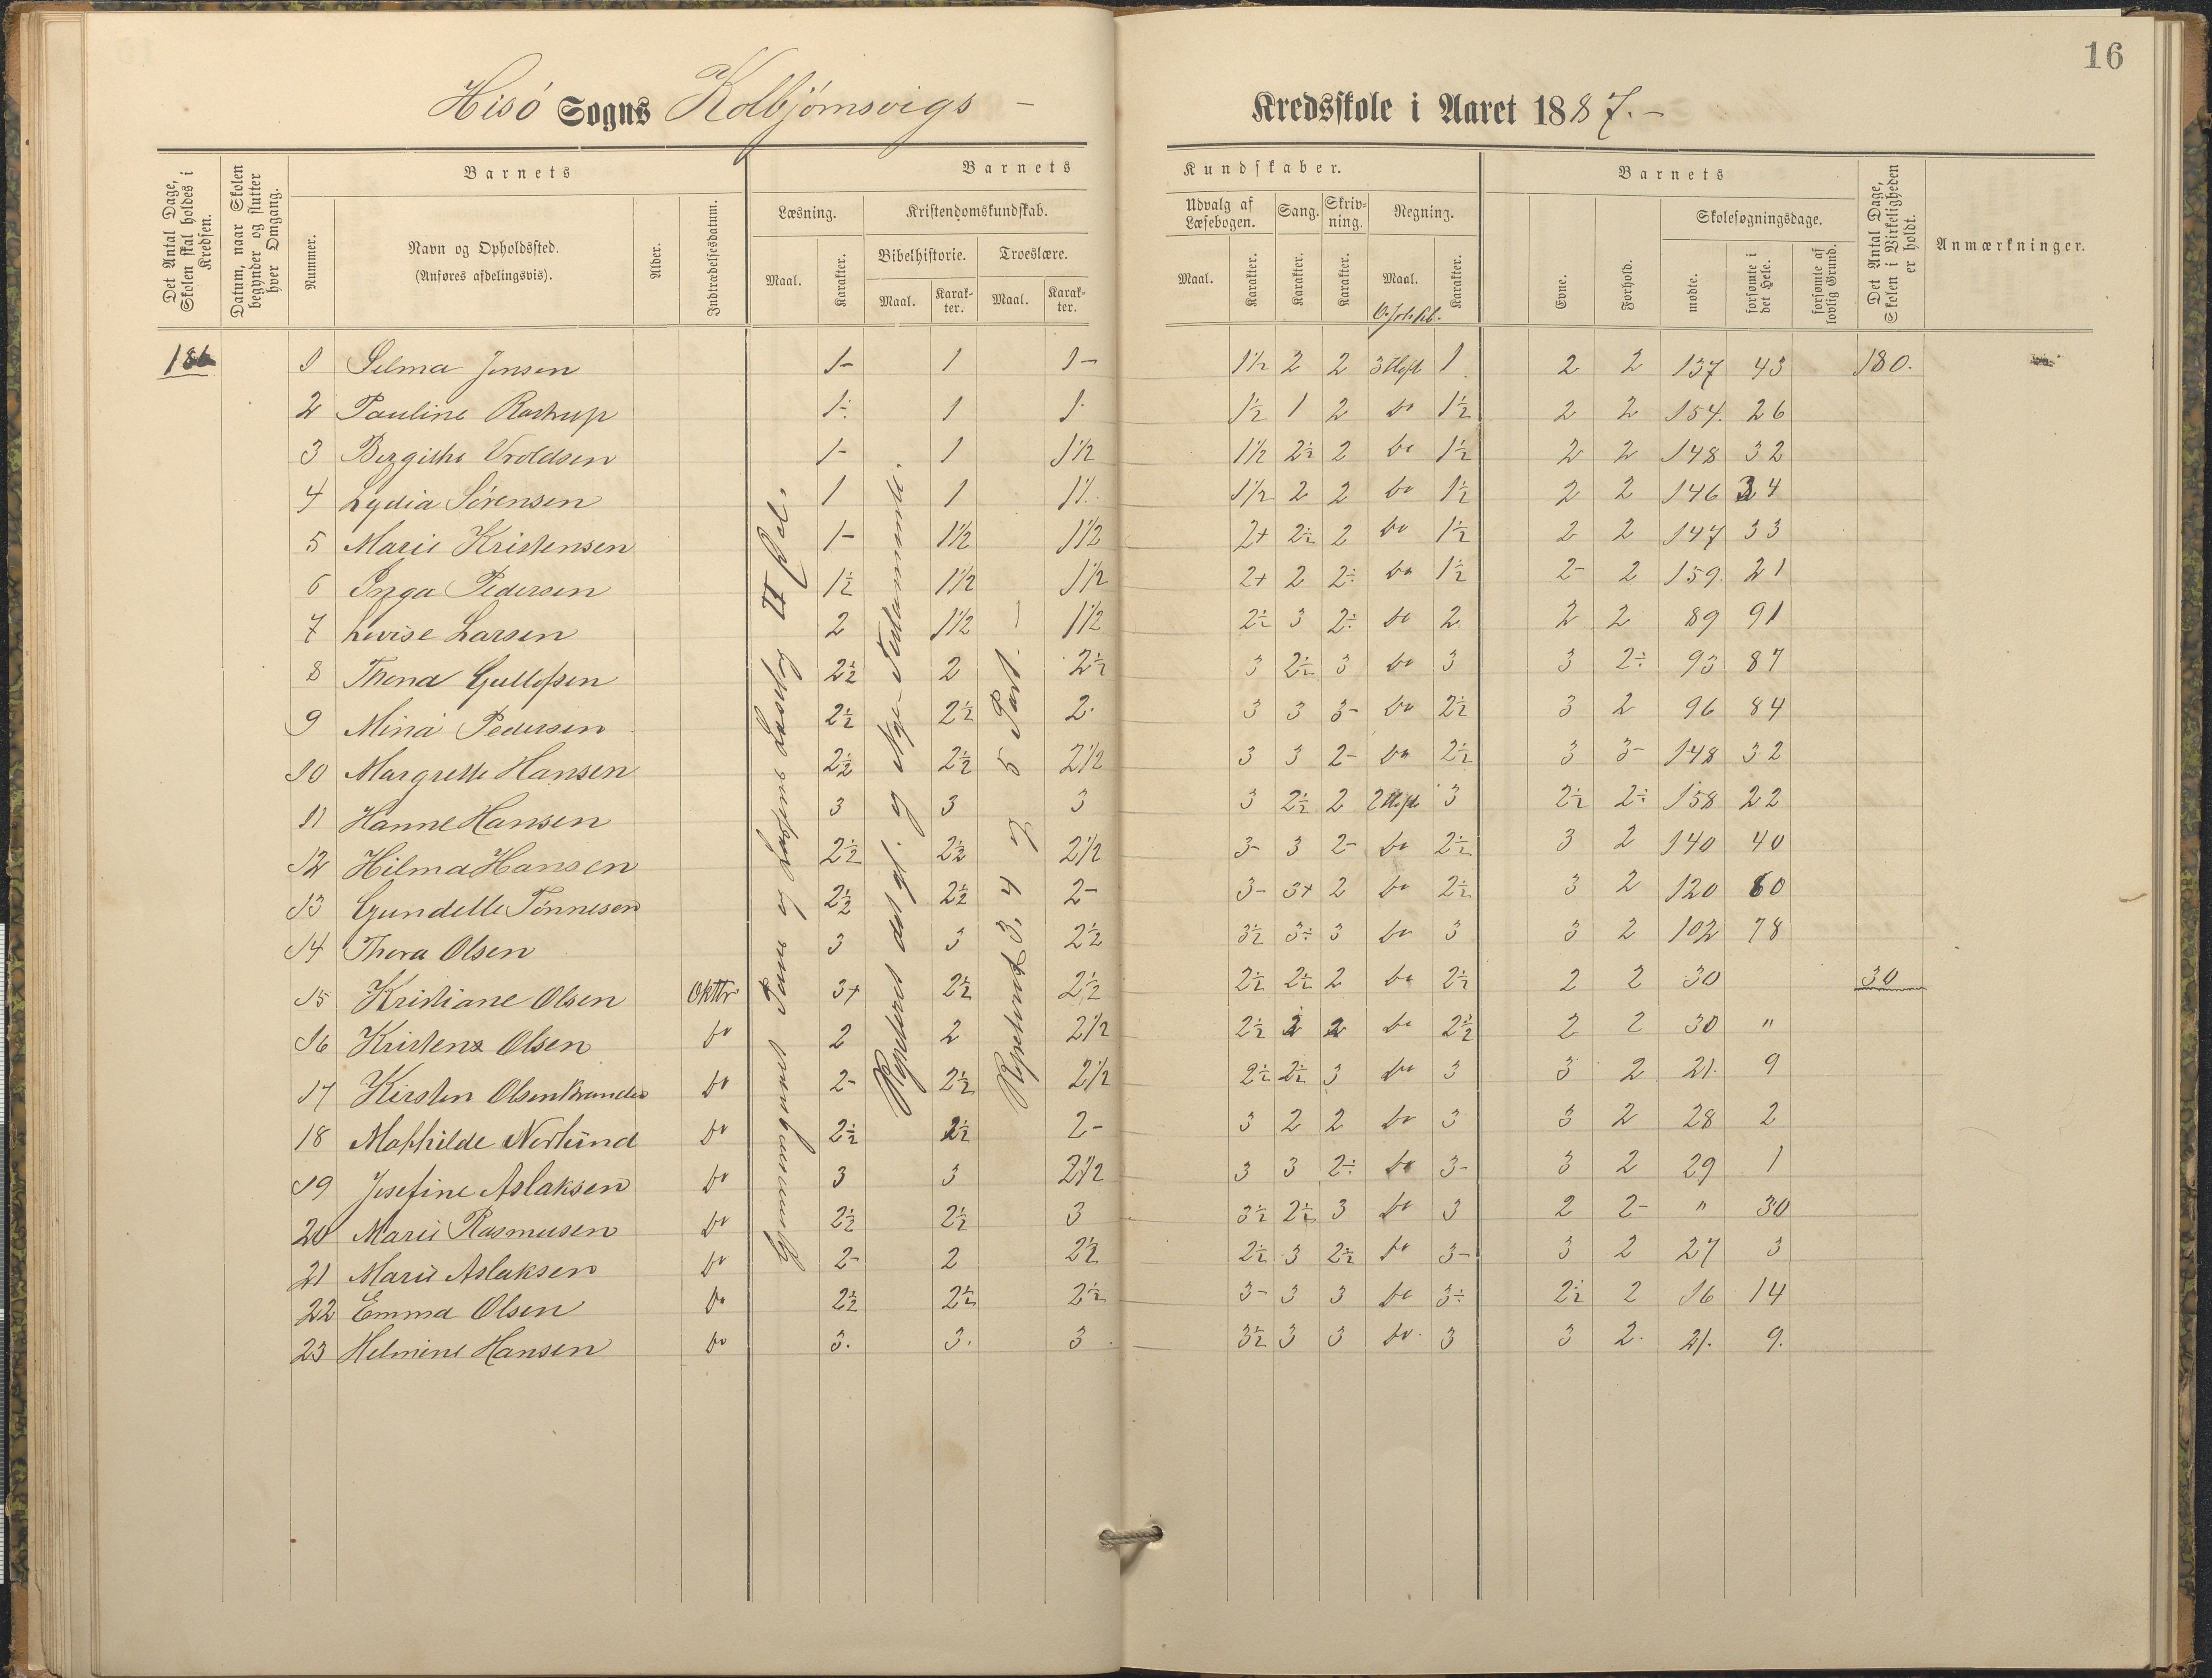 16
Hisö Sogns Kolbjörnsvigs –
Kredsskole i Aaret 1887. –
Det Antal Dage, Skolen skal holdes i Kredsen.
Datum, naar Skolen begynder og slutter hver Omgang.
Barnets
Nummer.
Navn og Opholdssted.
(Anføres afdelingsvis).
Alder.
Indtrædelsesdatum.
Barnets
Læsning.
Kristendomskundskab.
Bibelhistorie.
Troeslære.
Maal.
Karakter.
Maal.
Karakter.
Maal.
Karakter.
Kundskaber.
Udvalg af Læsebogen.
Sang.
Skrivning.
Regning.
Maal.
Karakter.
Karakter.
Karakter.
Maal.
Karakter.
Barnets
Evne.
Forhold.
Skolesøgningsdage.
mødte.
forsømte i det Hele.
forsømte af lovlig Grund.
Det Antal Dage, Skolen i Virkeligheden er holdt.
Anmærkninger.
186
1 Selma Jensen 1- 1 1- 1½ 2 2 3 1 2 2 137 43 180.
2 Pauline Rostrup 1÷ 1 1· 1½ 1 2 do 1½ 2 2 154. 26
3 Bergithe Vroldsen 1- 1 1½ 1½ 2½ 2 do 1½ 2 2 148 32
4 Lydia Sörensen 1 1 1½ 1½ 2 2 do 1½ 2 2 146 34
5 Marie Kristensen 1- 1½ 1½ 2+ 2½ 2 do 1½ 2 2 147 33
6 Inga Pedersen 1½ 1½ 1½ 2+ 2 2÷ do 1½ 2- 2 159. 21
7 Lovise Larsen 2 1½ 1½ 2½ 3 2÷ do 2 2 2 89 91
8 Thena Gullofsen 2½ 2 2½ 3 2½ 3 do 3 3 2÷ 93 87
9 Mina Pedersen 2½ 2½ 2· 3 3 3- do 2½ 3 2 96 84
10 Margrethe Hansen 2½ 2½ 2½ 3 3 2- do 2½ 3 3- 148 32
11 Hanne Hansen 3 3 3 3 2½ 2 2 3 2½ 2÷ 158 22
12 Hilma Hansen 2½ 2½ 2½ 3- 3 2- do 2½ 3 2 140 40
13 Gundelle Tönnesen 2½ 2½ 2- 3- 3+ 2 do 2½ 3 2 120 60
14 Thora Olsen 3 3 2½ 3½ 3÷ 3 do 3 3 2 102 78
15 Kristiane Olsen Oktbr 3+ 2½ 2½ 2½ 2½ 2 do 2½ 2 2 30 30
16 Kristena Olsen do 2 2 2½ 2½ 2 2 do 2½ 2 2 30 "
17 Kirsten Olsen do 2- 2½ 2½ 2½ 2½ 3 do 3 3 2 21. 9
18 Mathilde Nerlund do 2½ 2½ 2- 3 2 2 do 3 3 2 28 2
19 Josefine Aslaksen do 3 3 2½ 3 3 2÷ do 3- 3 2 29 1
20 Marie Rasmusen do 2½ 2½ 3 3½ 2½ 3 do 3 2 2- " 30
21 Marie Aslaksen do 2- 2 2½ 2½ 3 2½ do 3- 3 2 27 3
22 Emma Olsen do 2½ 2½ 2½ 3- 3 3 do 3÷ 2½ 2 16 14
23 Helmine Hansen do 3. 3. 3 3½ 3 3 do 3 3 2. 21. 9.
Repeteret det gl. og Nye-Testamente.
Repeteret 3, 4 5 Part.